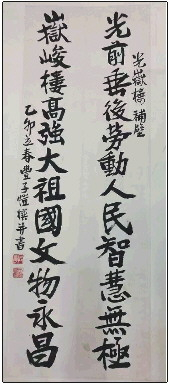 光嶽樓補壁
光前垂後勞動人民智慧無極
嶽峻樓高強大祖國文物永昌
乙卯立春豐子愷撰并書